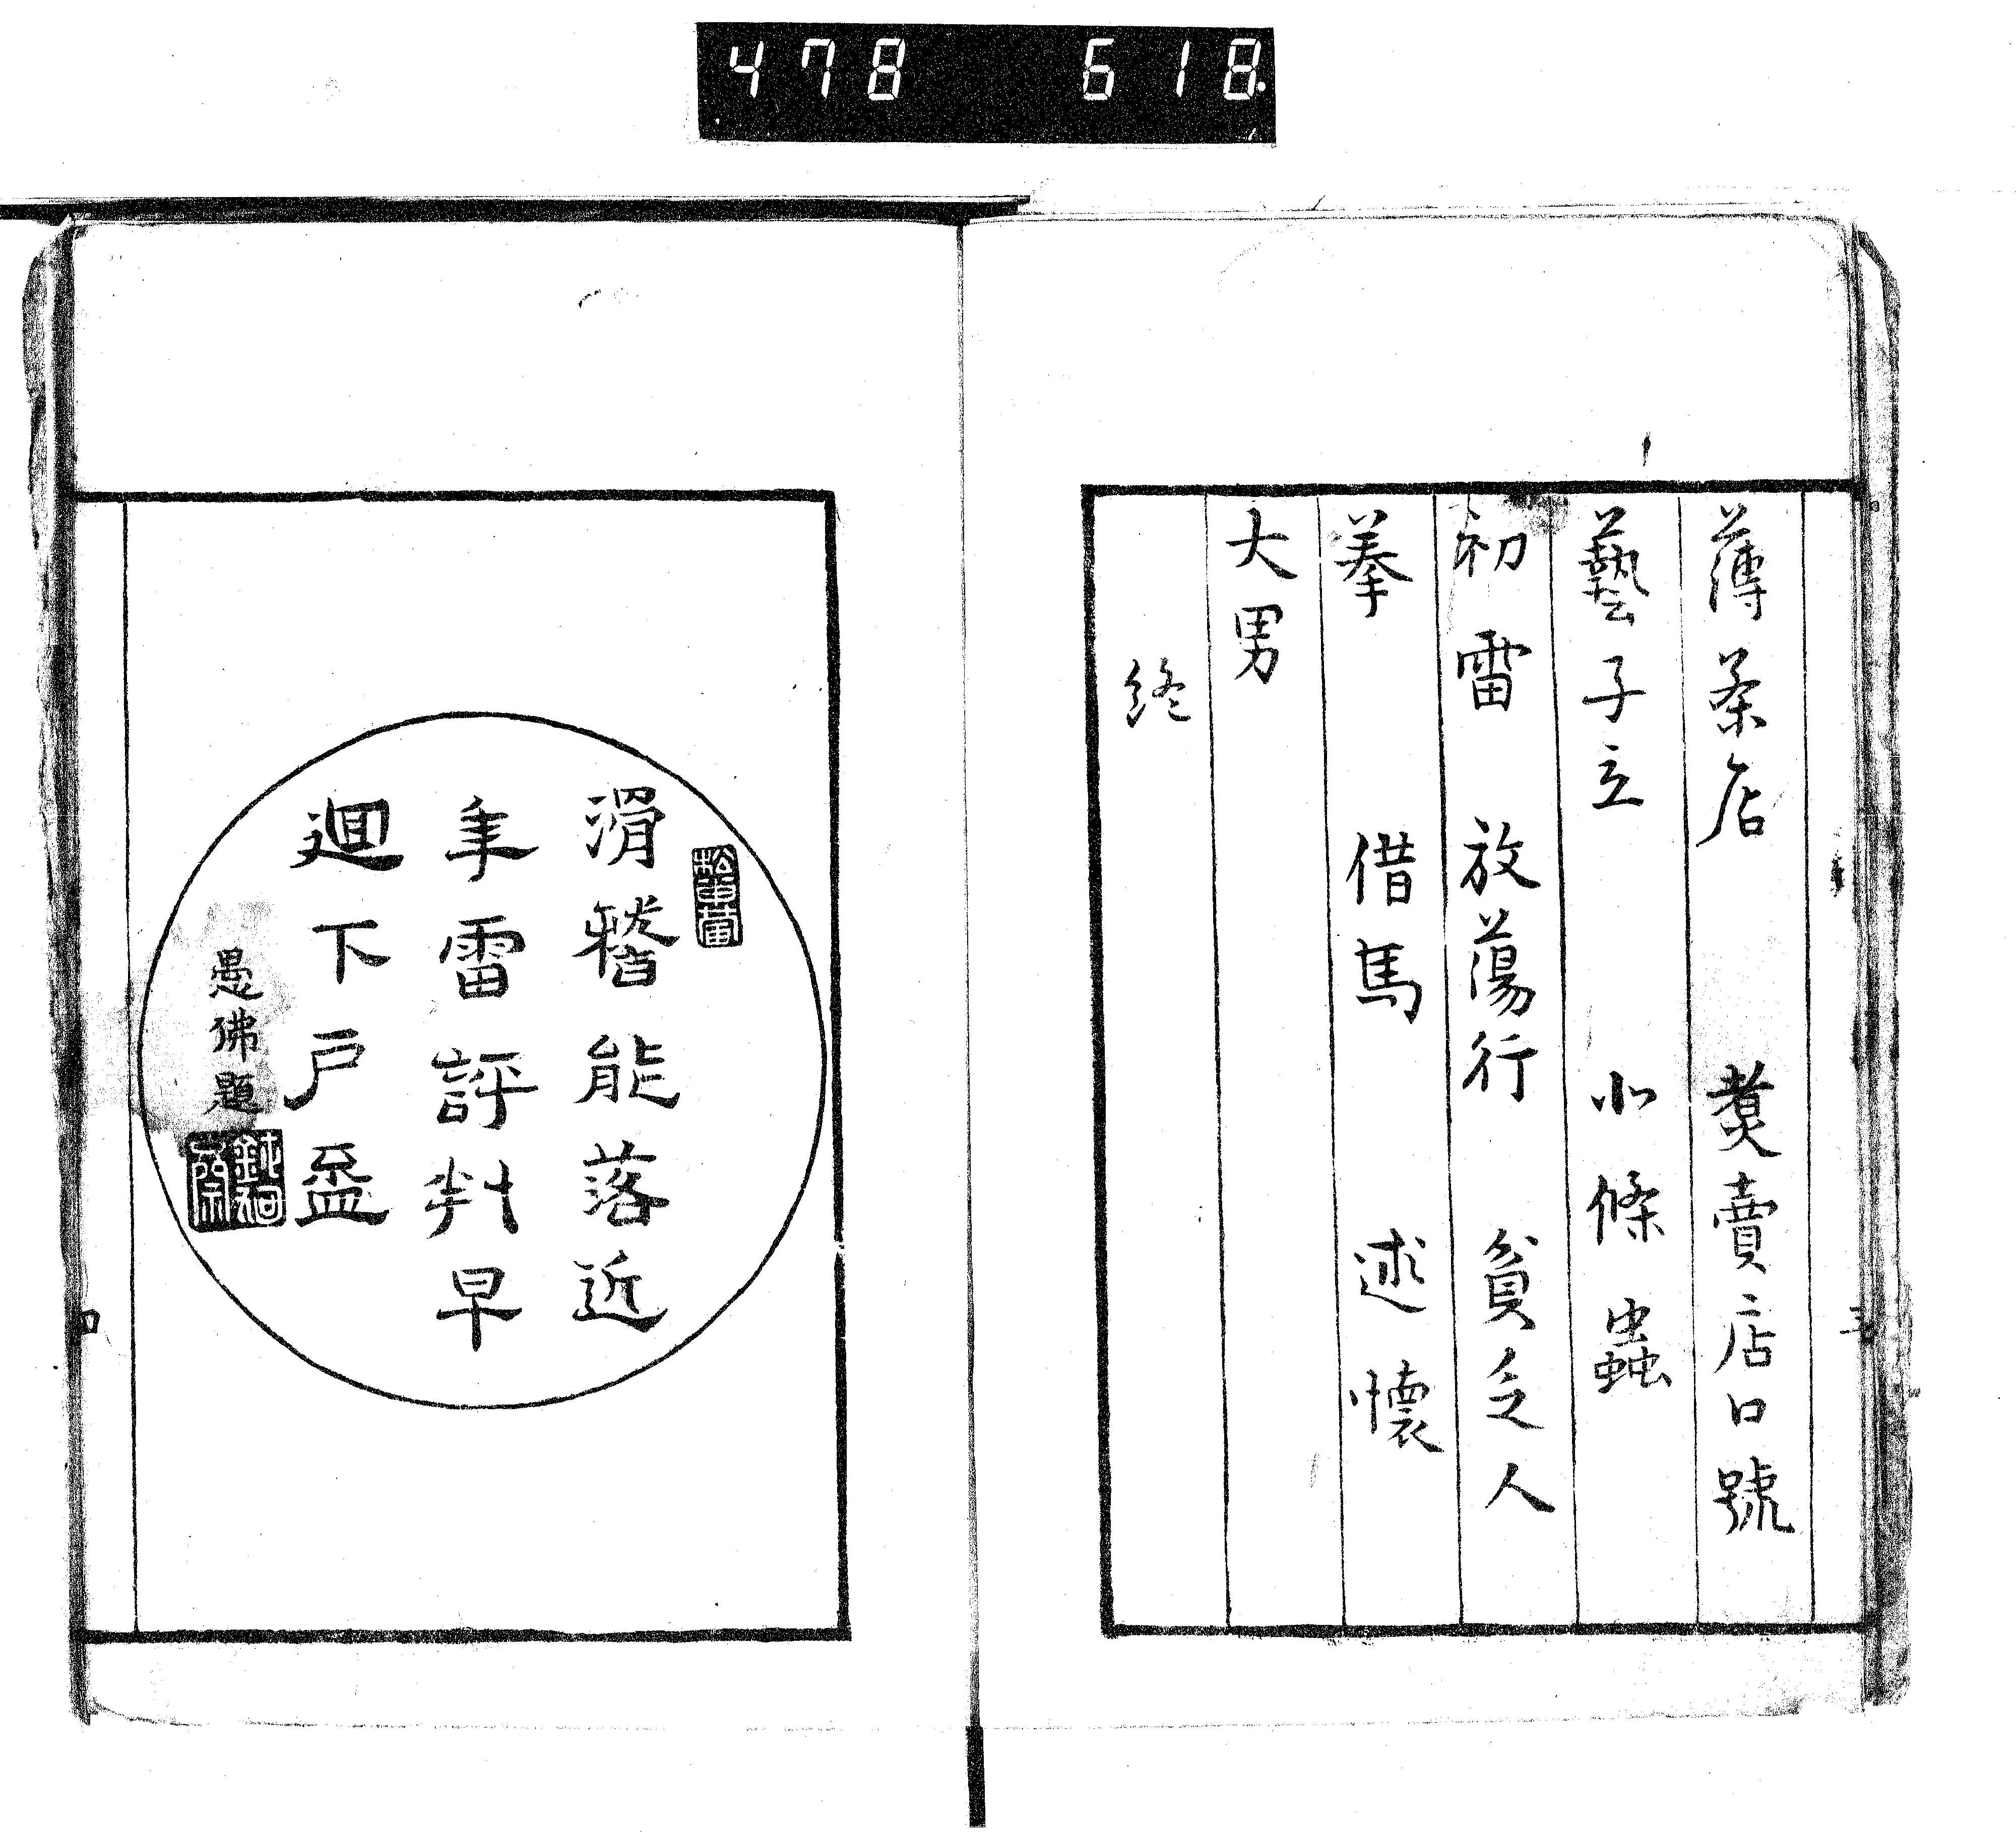 478 618.
薄茶店 煑賣店口號
藝子立 小條蟲
初雷 放蕩行 貧乏人
拳 借馬 述懷
大男
終
滑稽能落近
年雷評判早
廻下戸盃
愚佛題